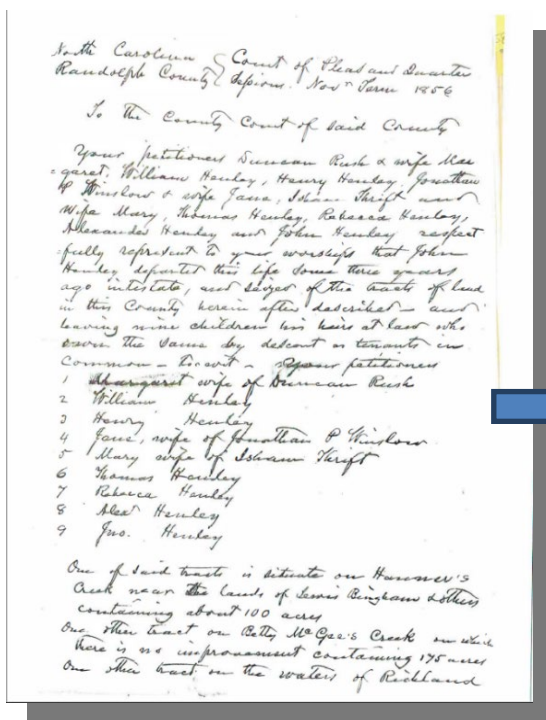 North Carolina } Court of Pleas and Quarter
Randolph County } Sessions. Nov Term 1856
To the County Court of said County
Your petitioners Duncan Rush & wife Mar
garet, William Henley, Henry Henley, Jonathan
P Winslow & wife Jane, Isham Thrift and
wife Mary, Thomas Henley, Rebecca Henley,
Alexander Henley and John Henley respect
fully represent to your worships that John
Henley departed this life some three years
ago intestate, and seized of the tracts of land
in this County herein after described – and
leaving nine children his heirs at law who
own the same by descent as tenants in
common – to wit – your petitioners
1 Margaret wife of Duncan Rush
2 William Henley
3 Henry Henley
4 Jane, wife of Jonathan P Winslow
5 Mary wife of Isham Thrift
6 Thomas Henley
7 Rebecca Henley
8 Alex Henley
9 Jno. Henley
One of said tracts is situate on Hannner's
Creek near the lands of Lewis Bingham & others
containing about 100 acres
One other tract on Betty McGee's Creek on which
there is no improvement containing 175 acres
One other tract on the waters of Richland